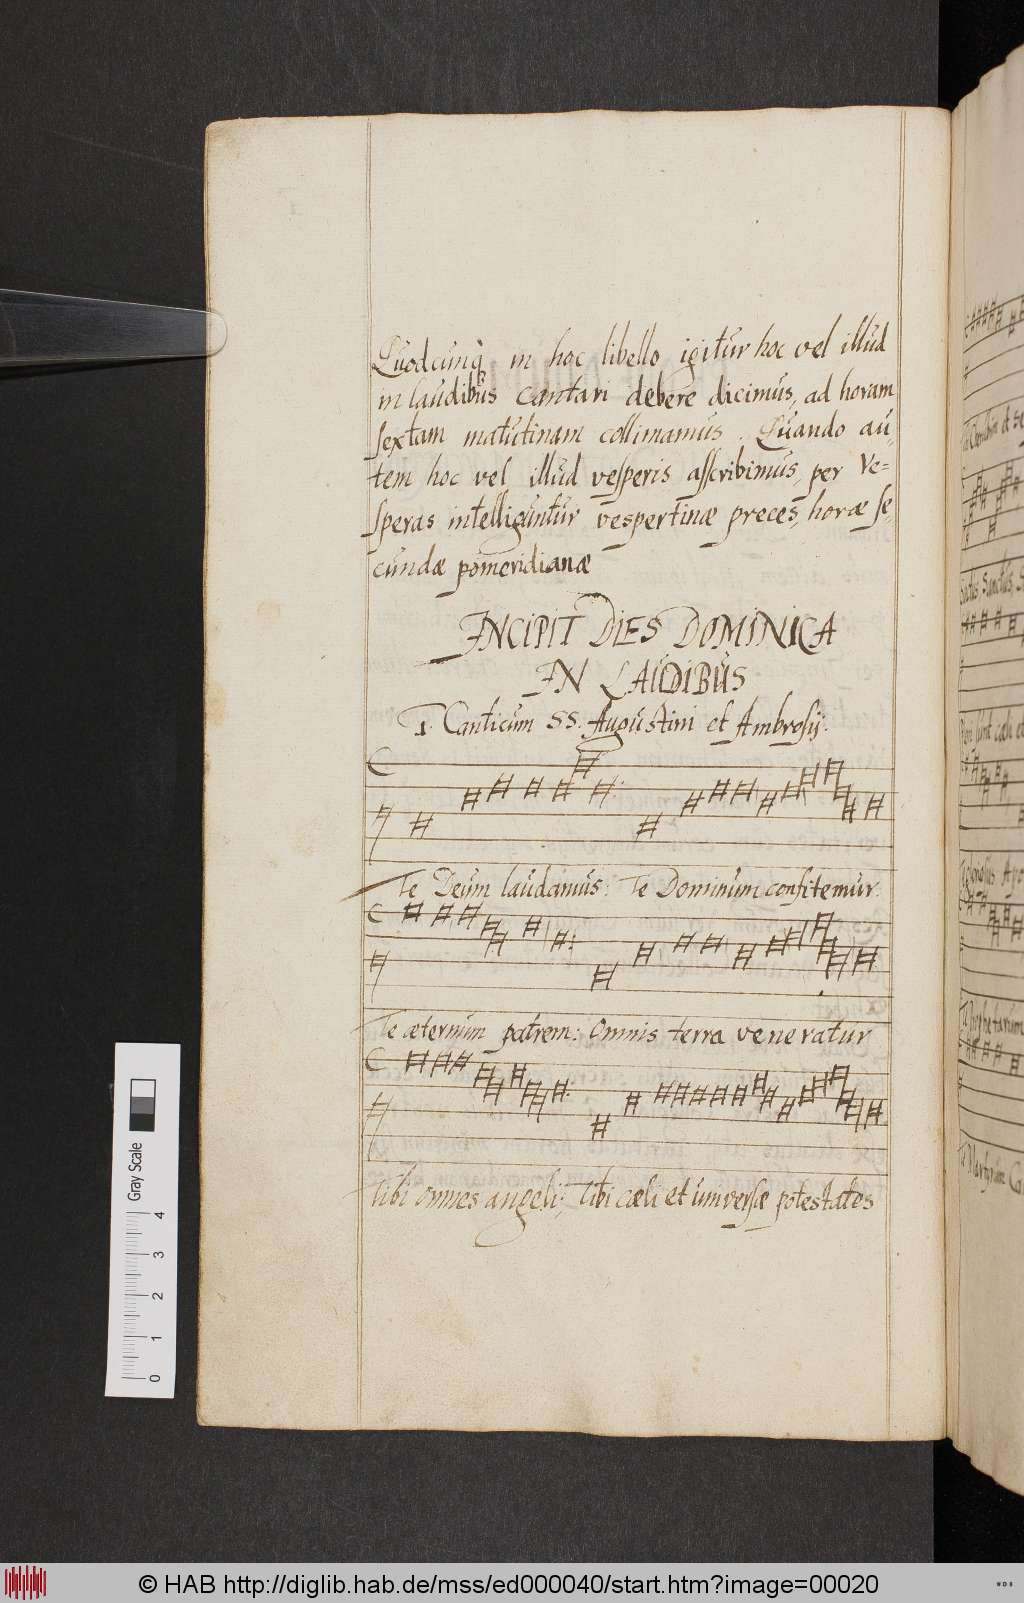 Quodcunq; in hoc libello igitur hoc vel illud
in laudibus cantari debere dicimus, ad horam
sextam matutinam collimamus. Quando au-
tem hoc vel illud vesperis asscribimus, per Ve=
speras intelliguntur vespertinæ preces, horæ se-
cundæ pomeridianæ
INCIPIT DIES DOMINICA
IN LAUDIBUS
1. Canticum SS. Augustini et Ambrosij.
Te Deum laudamus: Te Dominum confitemur.
Te æternum patrem: Omnis terra veneratur
Tibi omnes angeli; Tibi cæli et universæ potestates
Gray Scale
4
3
2
1
0
© HAB http://diglib.hab.de/mss/ed000040/start.htm?image=00020